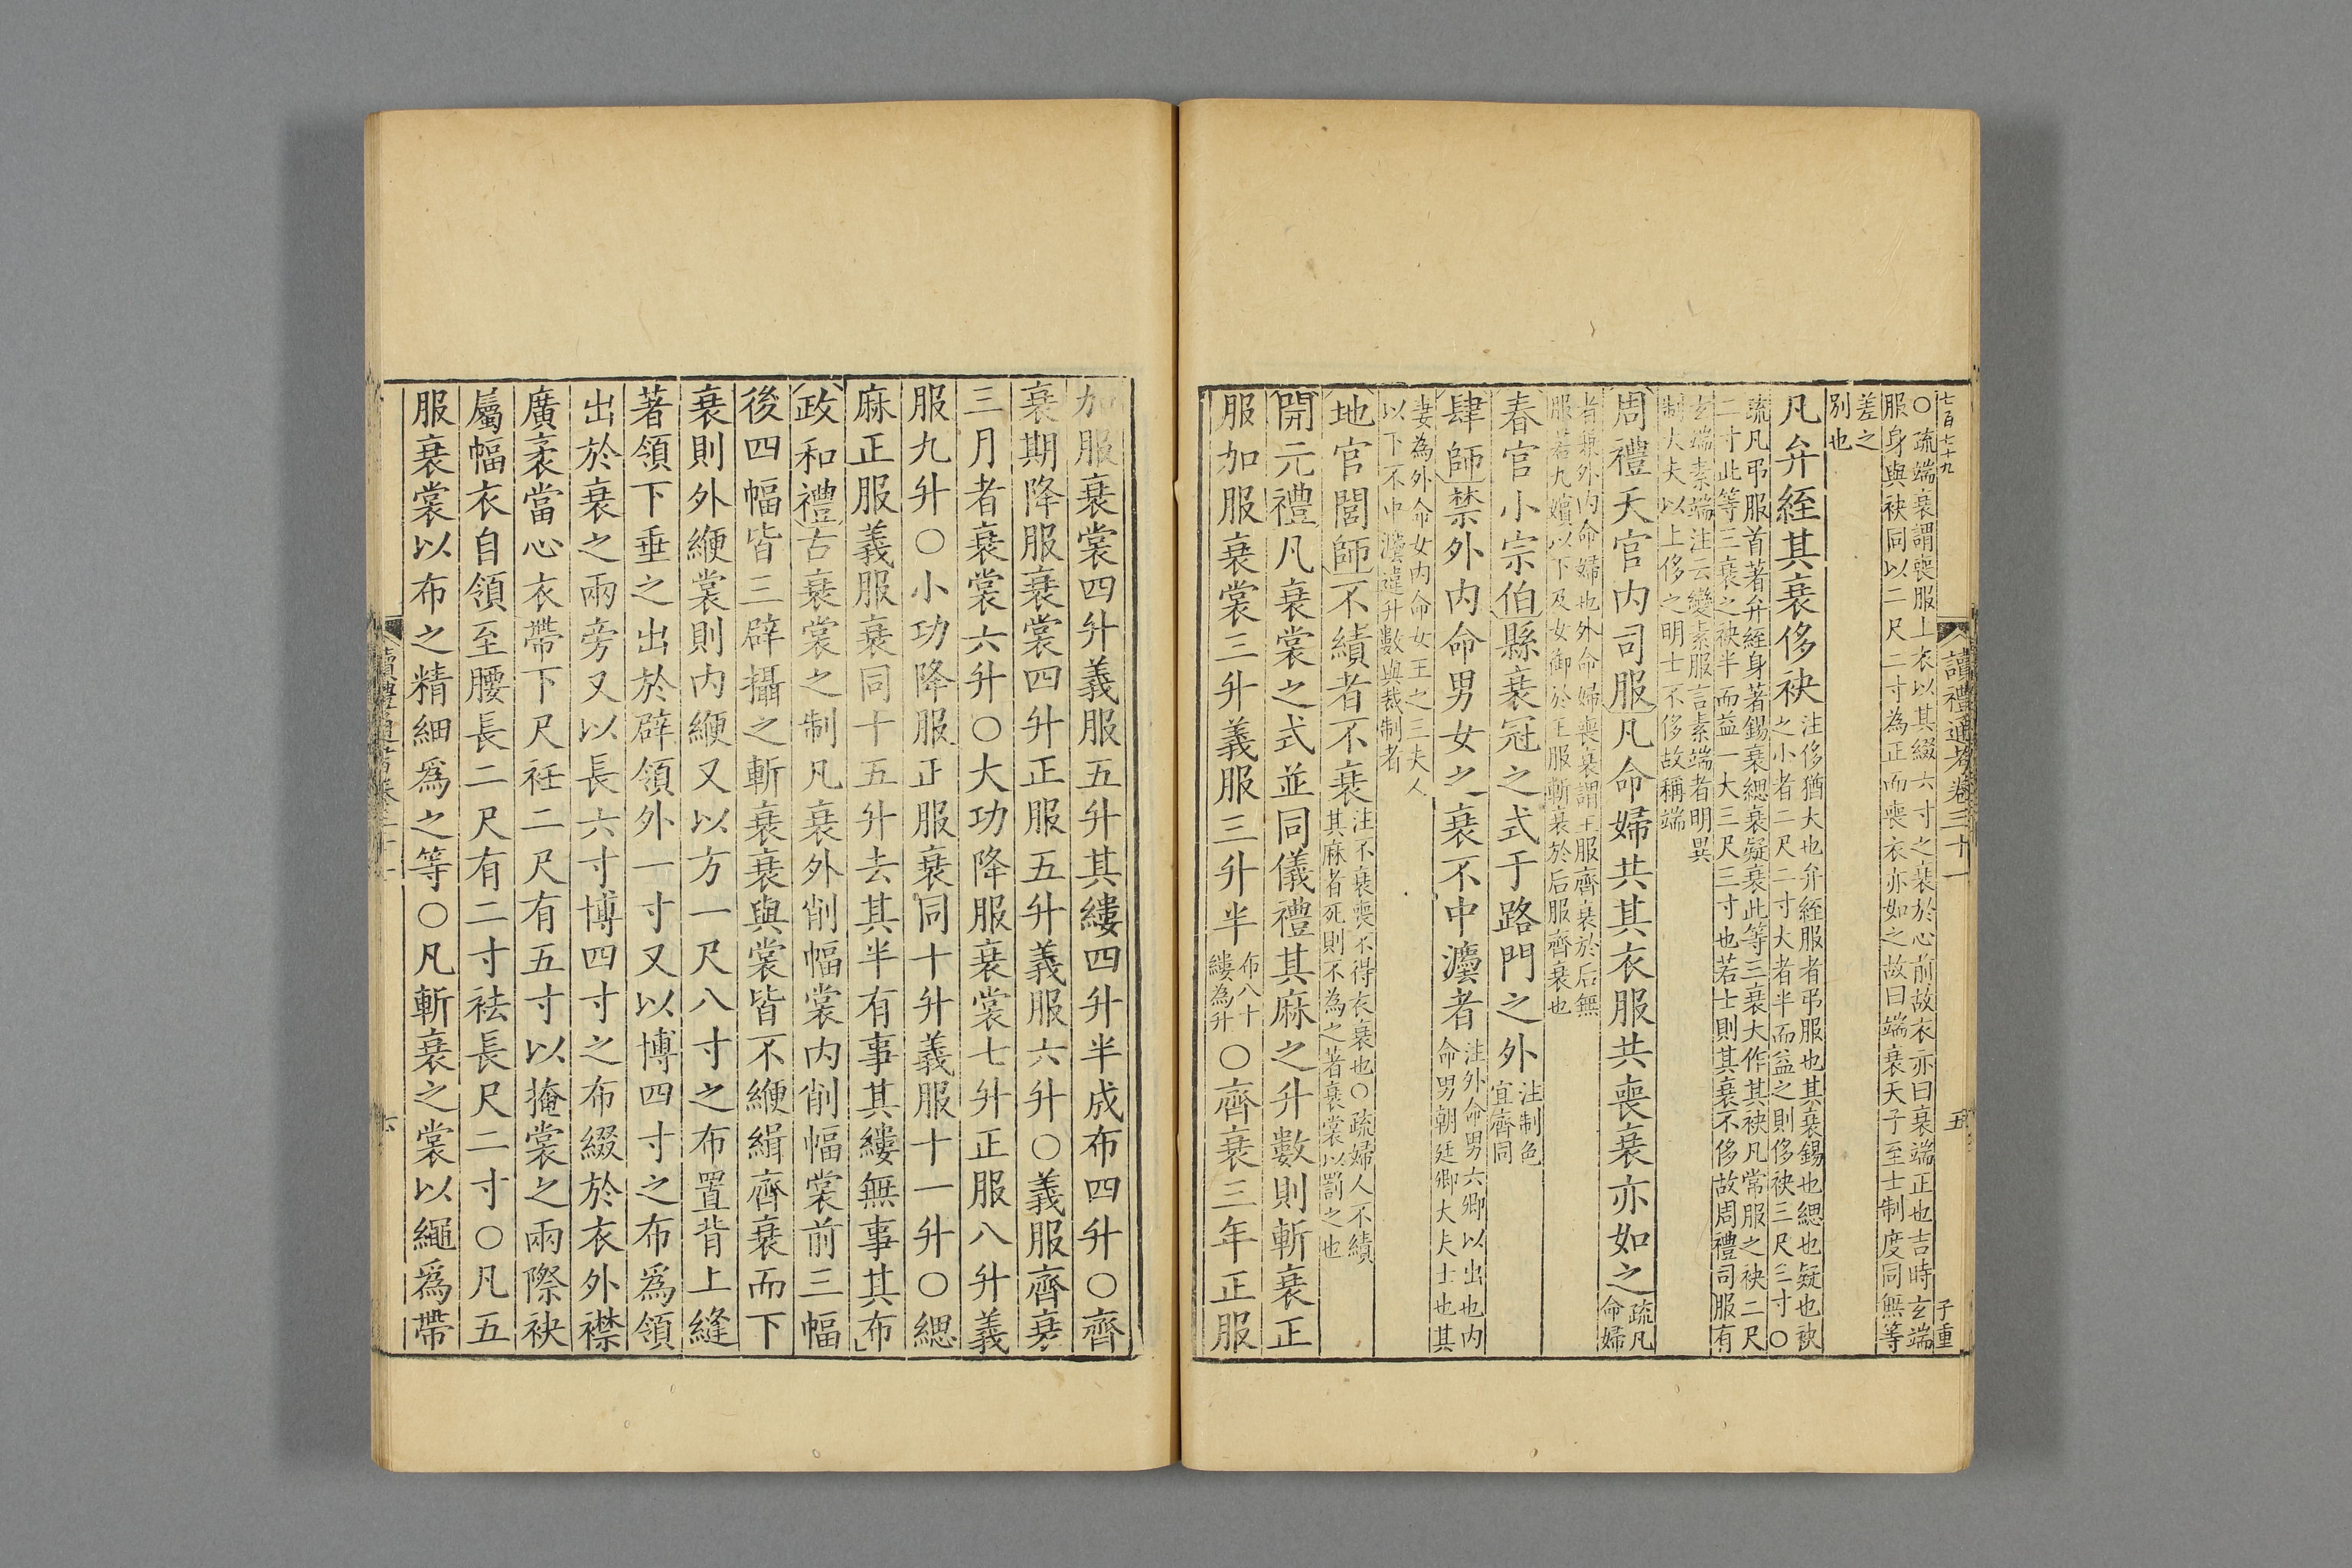 七百七十九
讀禮通考卷三十一
五
子重
○疏端衰謂喪服上衣以其綴六寸之衰於心前故衣亦曰衰端正也吉時玄端
服身與袂同以二尺二寸為正而喪衣亦如之故曰端衰天子至士制度同無等
差之
別也
凡弁絰其衰侈袂
注侈猶大也弁絰服者弔服也其衰錫也緦也疑也袂
之小者二尺二寸大者半而益之則侈袂三尺三寸○
疏凡弔服首著弁絰身著錫衰緦衰疑衰此等三衰大作其袂凡常服之袂二尺
二寸此等三衰之袂半而益一大三尺三寸也若士則其衰不侈故周禮司服有
玄端素端注云變素服言素端者明異
制大夫以上侈之明士不侈故稱端
周禮天官內司服凡命婦共其衣服共喪衰亦如之
疏凡
命婦
者兼外內命婦也外命婦喪衰謂王服齊衰於后無
服若九嬪以下及女御於王服斬衰於后服齊衰也
春官小宗伯縣衰冠之式于路門之外
注制色
宜齊同
肆師禁外內命男女之衰不中灋者
注外命男六卿以出也內
命男朝廷卿大夫士也其
妻為外命女內命女王之三夫人
以下不中灋違升數與裁制者
地官閭師不績者不衰
注不衰喪不得衣衰也○疏婦人不績
其麻者死則不為之著衰裳以罰之也
開元禮凡衰裳之式並同儀禮其麻之升數則斬衰正
服加服衰裳三升義服三升半
布八十
縷為升
○齊衰三年正服
加服衰裳四升義服五升其縷四升半成布四升○齊
衰期降服衰裳四升正服五升義服六升○義服齊衰
三月者衰裳六升○大功降服衰裳七升正服八升義
服九升○小功降服正服衰同十升義服十一升○緦
麻正服義服衰同十五升去其半有事其縷無事其布
政和禮古衰裳之制凡衰外削幅裳內削幅裳前三幅
後四幅皆三辟攝之斬衰衰與裳皆不緶緝齊衰而下
衰則外緶裳則內緶又以方一尺八寸之布置背上縫
著領下垂之出於辟領外一寸又以博四寸之布爲領
出於衰之兩旁又以長六寸博四寸之布綴於衣外襟
廣袤當心衣帶下尺衽二尺有五寸以掩裳之兩際袂
屬幅衣自領至腰長二尺有二寸袪長尺二寸○凡五
服衰裳以布之精細爲之等○凡斬衰之裳以繩爲帶